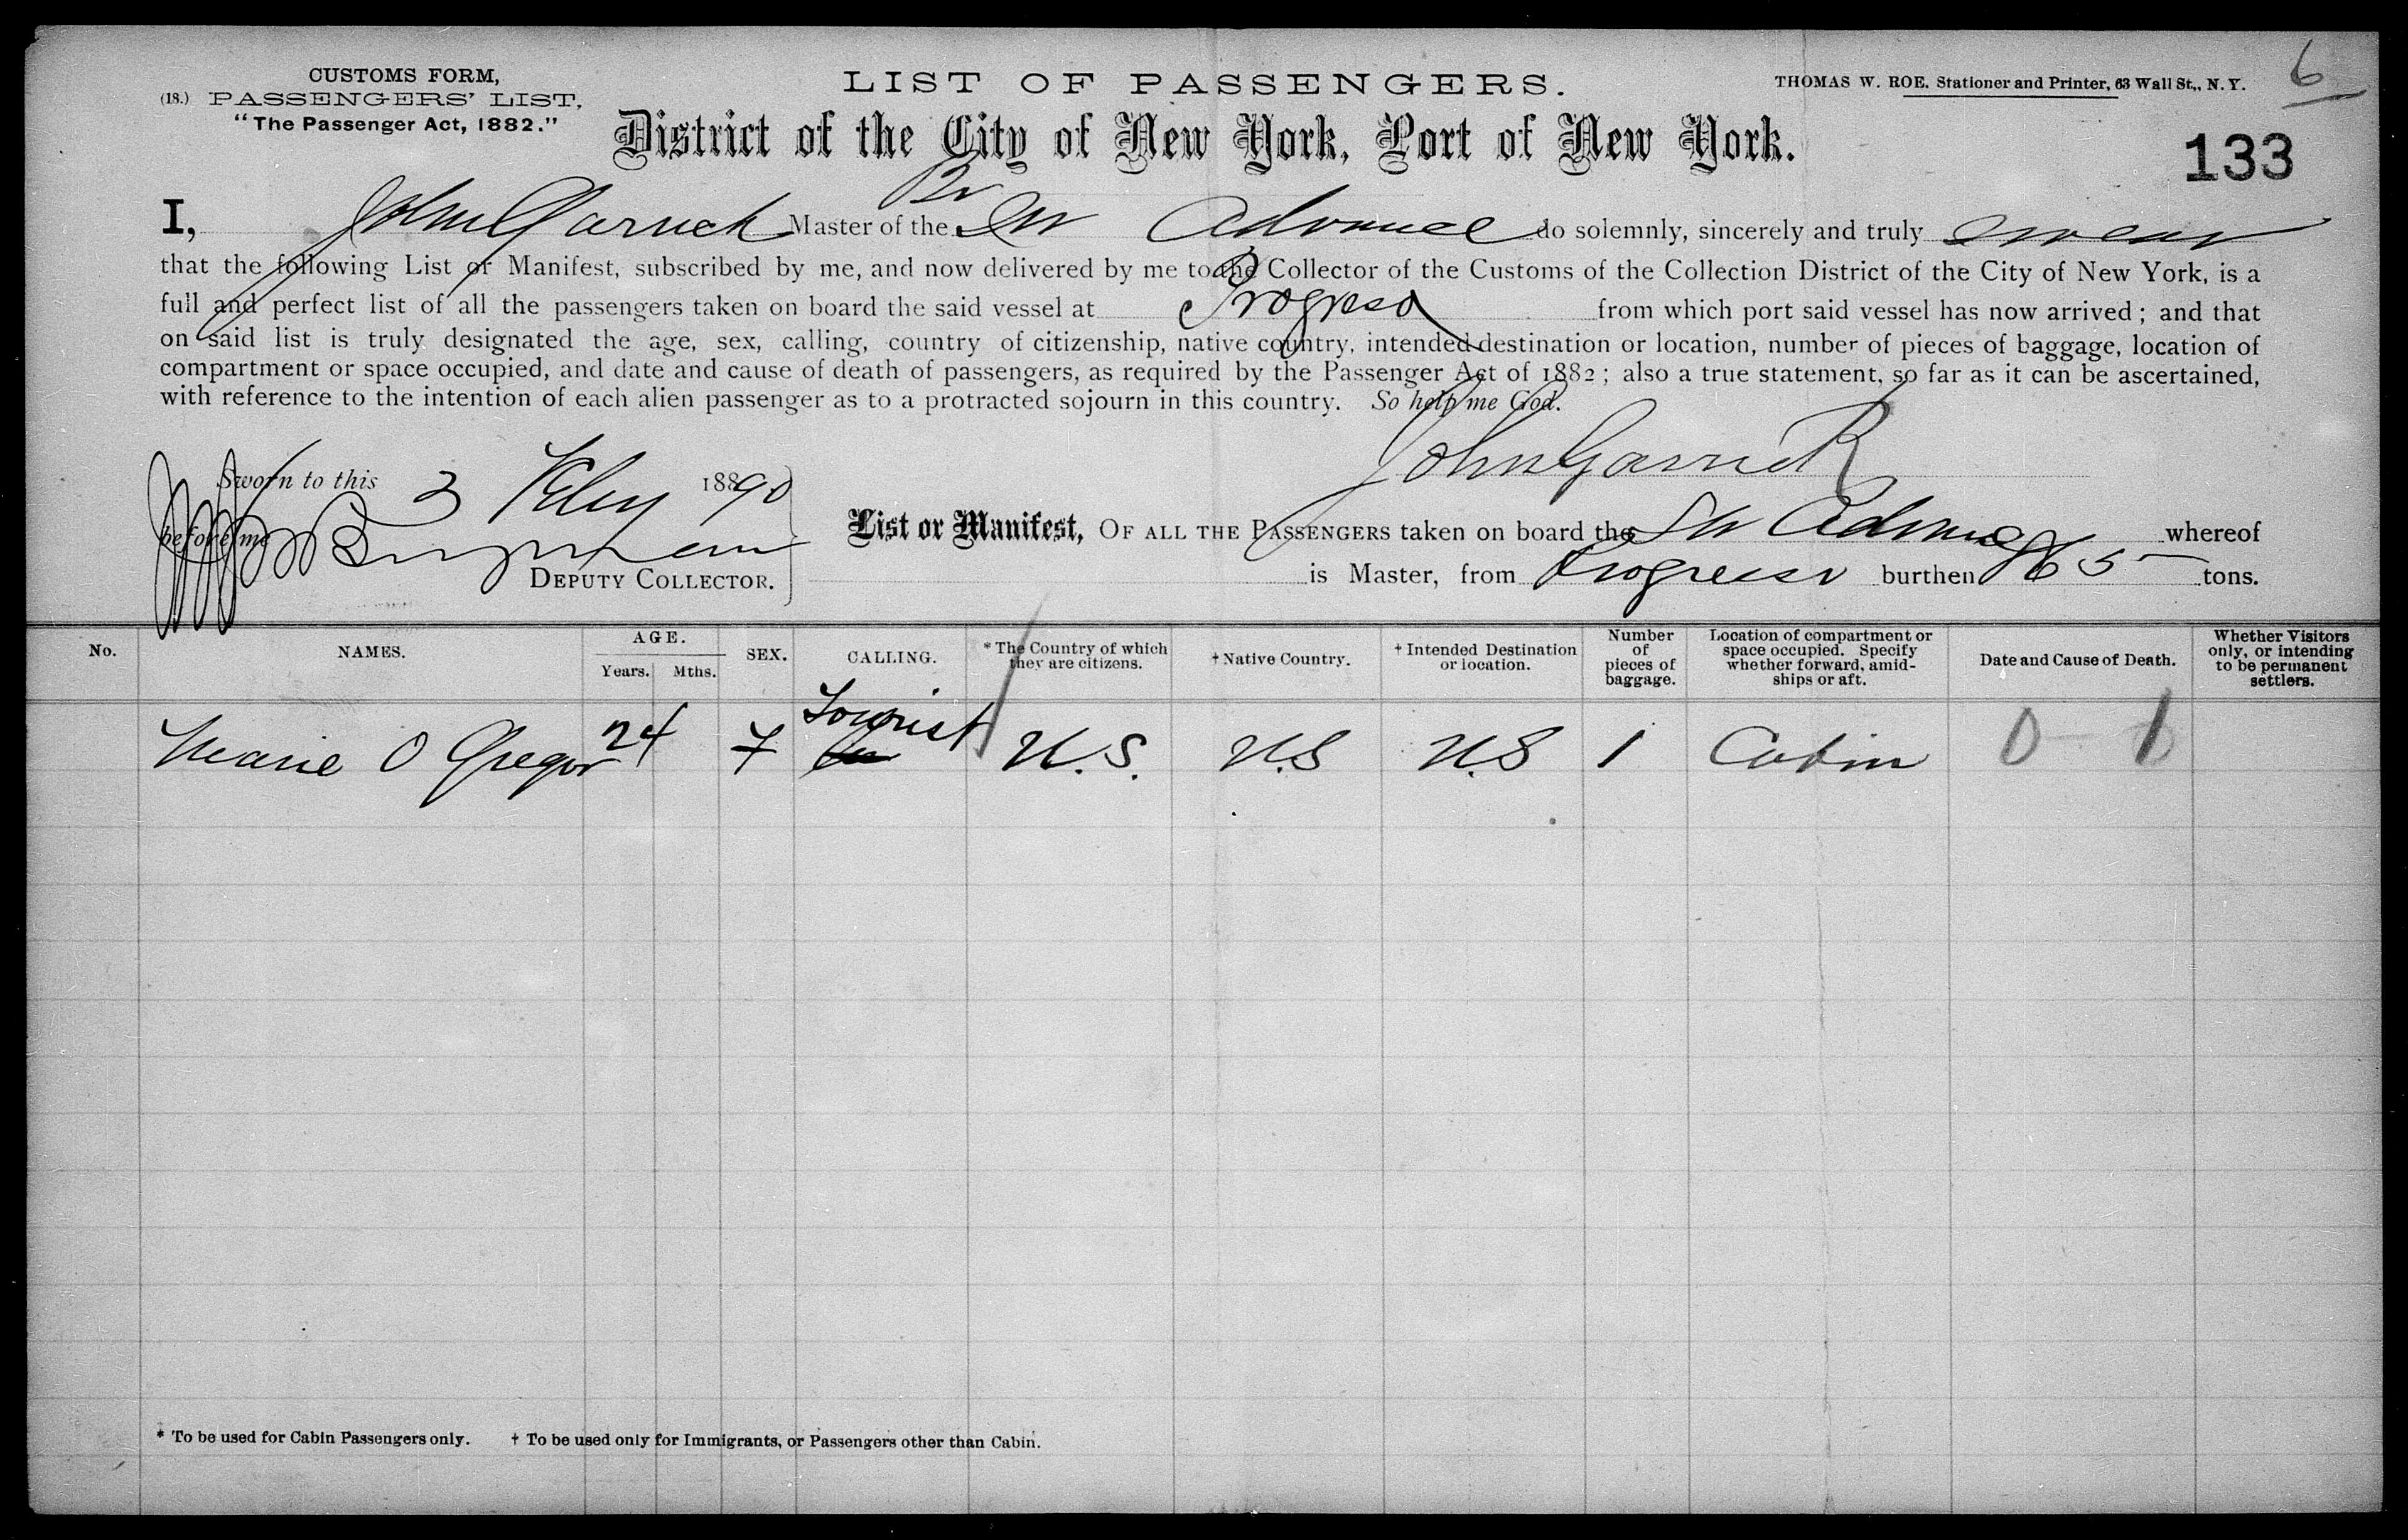 CUSTOMS FORM,
(18.) PASSENGERS' LIST,
"The Passenger Act, 1882."
LIST OF PASSENGERS.
THOMAS W. ROE. Stationer and Printer, 63 Wall St., N. Y.
6
District of the City of New York, Port of New York.
133
Br
I, John Garrick Master of the Str Advance do solemnly, sincerely and truly swear
that the following List or Manifest, subscribed by me, and now delivered by me to the Collector of the Customs of the Collection District of the City of New York, is a
full and perfect list of all the passengers taken on board the said vessel at Progreso from which port said vessel has now arrived; and that
on said list is truly designated the age, sex, calling, country of citizenship, native country, intended destination or location, number of pieces of baggage, location of
compartment or space occupied, and date and cause of death of passengers, as required by the Passenger Act of 1882; also a true statement, so far as it can be ascertained,
with reference to the intention of each alien passenger as to a protracted sojourn in this country. So help me God.
John Garrick
Sworn to this 3 Feby 1890
before me
DEPUTY COLLECTOR.
List or Manifest, OF ALL THE PASSENGERS taken on board the Str Advance whereof
is Master, from Progreso burthen 865 tons.
No. NAMES. AGE. Years. Mths. SEX. CALLING. * The Country of which they are citizens. † Native Country. † Intended Destination or location. Number of pieces of baggage. Location of compartment or space occupied. Specify whether forward, amidships or aft. Date and Cause of Death. Whether Visitors only, or intending to be permanent settlers.
Marie O Gregor 24 F Tourist U.S. U.S U.S 1 Cabin 0 1
* To be used for Cabin Passengers only. † To be used only for Immigrants, or Passengers other than Cabin.